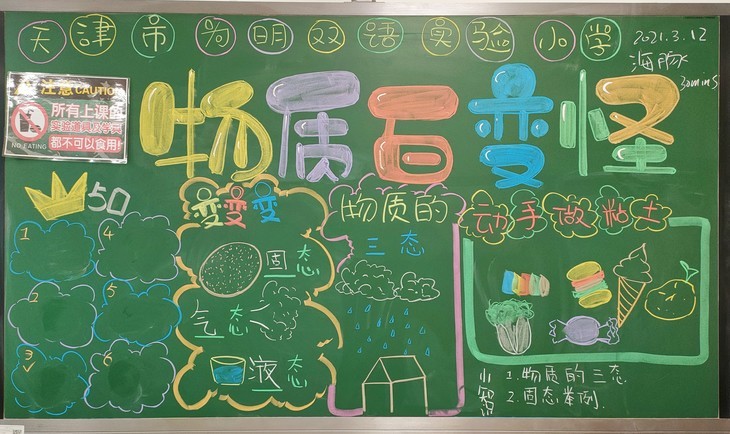 天津市尚明双语实验小学
2021.3.12
海豚
30mins
注意 CAUTION
所有上课的
实验道具及学具
都不可以食用!
NO EATING
物质百变怪
50
1
4
2
5
3
6
变变变
固态
气态
液态
物质的
三态
动手做粘土
小智识
1.物质的三态
2.固态举例.